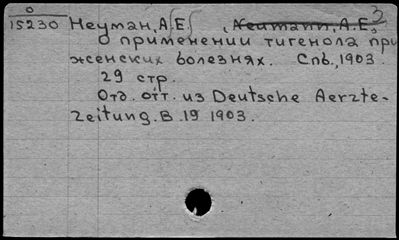 О
15230 Нейман, А.Е. , Neumann, A.E. 3
О применении тигенола при
женских болезнях. Спб., 1903.
29 стр.
Отд. отт. из Deutsche Aerzte-
Zeitung. B. 19 1903.